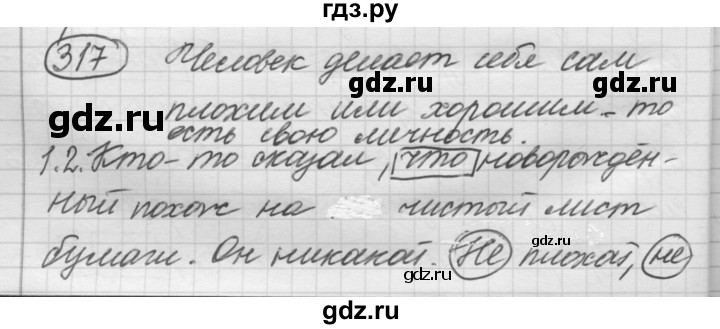 гдз.ру
317 Человек делает себя сам
gdz.ru gdz.ru
плохим или хорошим - то
gdz.ru gdz.ru
есть свою личность.
1.2. Кто-то сказал, что новорождён-
ный похож на чистый лист
gdz.ru gdz.ru
бумаги. Он никакой. Не плохой, не
gdz.ru gdz.ru
гдз.ру